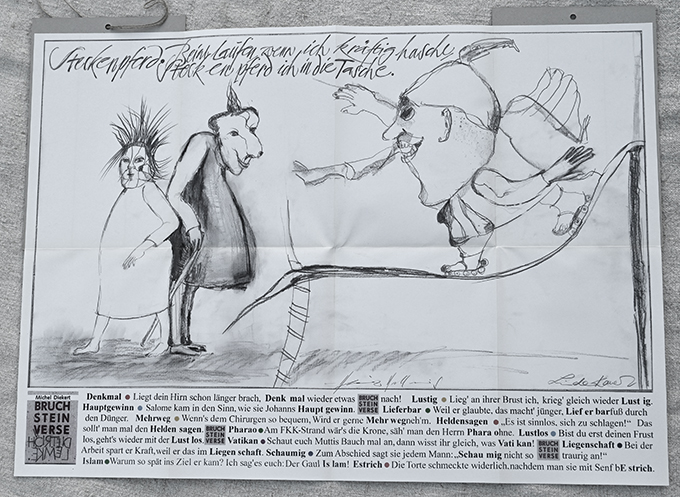 Steckenpferd. Beim Laufen, wenn ich kräftig hasche,
steck en pferd ich in die Tasche.
Michel Diekert
BRUCH
STEIN
VERSE
DIETRICH
LEMKE
Denkmal ● Liegt dein Hirn schon länger brach, Denk mal wieder etwas BRUCH STEIN VERSE nach! Lustig ● Lieg' an ihrer Brust ich, krieg' gleich wieder Lust ig.
Hauptgewinn ● Salome kam in den Sinn, wie sie Johanns Haupt gewinn. Lieferbar ● Weil er glaubte, das macht' jünger, Lief er barfuß durch
den Dünger. Mehrweg ● Wenn's dem Chirurgen so bequem, Wird er gerne Mehr wegnehm. Heldensagen ● „Es ist sinnlos, sich zu schlagen!“ Das
sollt' man mal den Helden sagen BRUCH STEIN VERSE Pharao ● Am FKK-Strand wär's die Krone, säh' man den Herrn Phara ohne. Lustlos ● Bist du erst deinen Frust
los, geht's wieder mit der Lust los. Vatikan ● Schaut euch Muttis Bauch mal an, dann wisst ihr gleich, was Vati kan! BRUCH STEIN VERSE Liegenschaft ● Bei der
Arbeit spart er Kraft, weil er das im Liegen schaft. Schaumig ● Zum Abschied sagt sie jedem Mann: „Schau mig nicht so traurig an!“
Islam ● Warum so spät ins Ziel er kam? Ich sag's euch: Der Gaul Is lam! Estrich ● Die Torte schmeckte widerlich, nachdem man sie mit Senf bE strich.